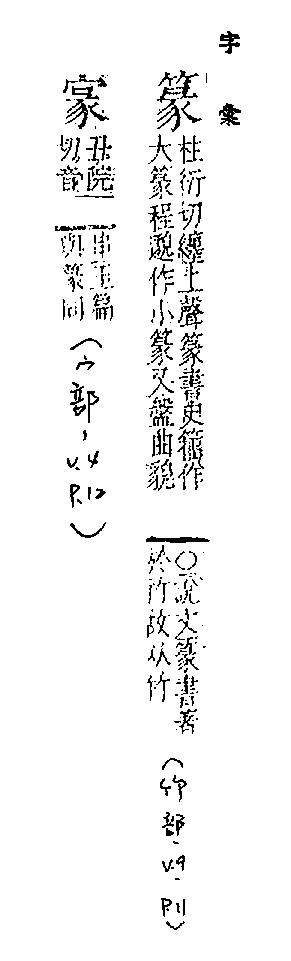 字彙
篆
柱衍切纏上聲篆書史籀作
大篆程邈作小篆又盤曲貌
〇說文篆書著
於竹故从竹
(竹部.V.9.P.11)
㝩
丑院
切音
串玉篇
與篆同
(宀部,V.4 P.12)